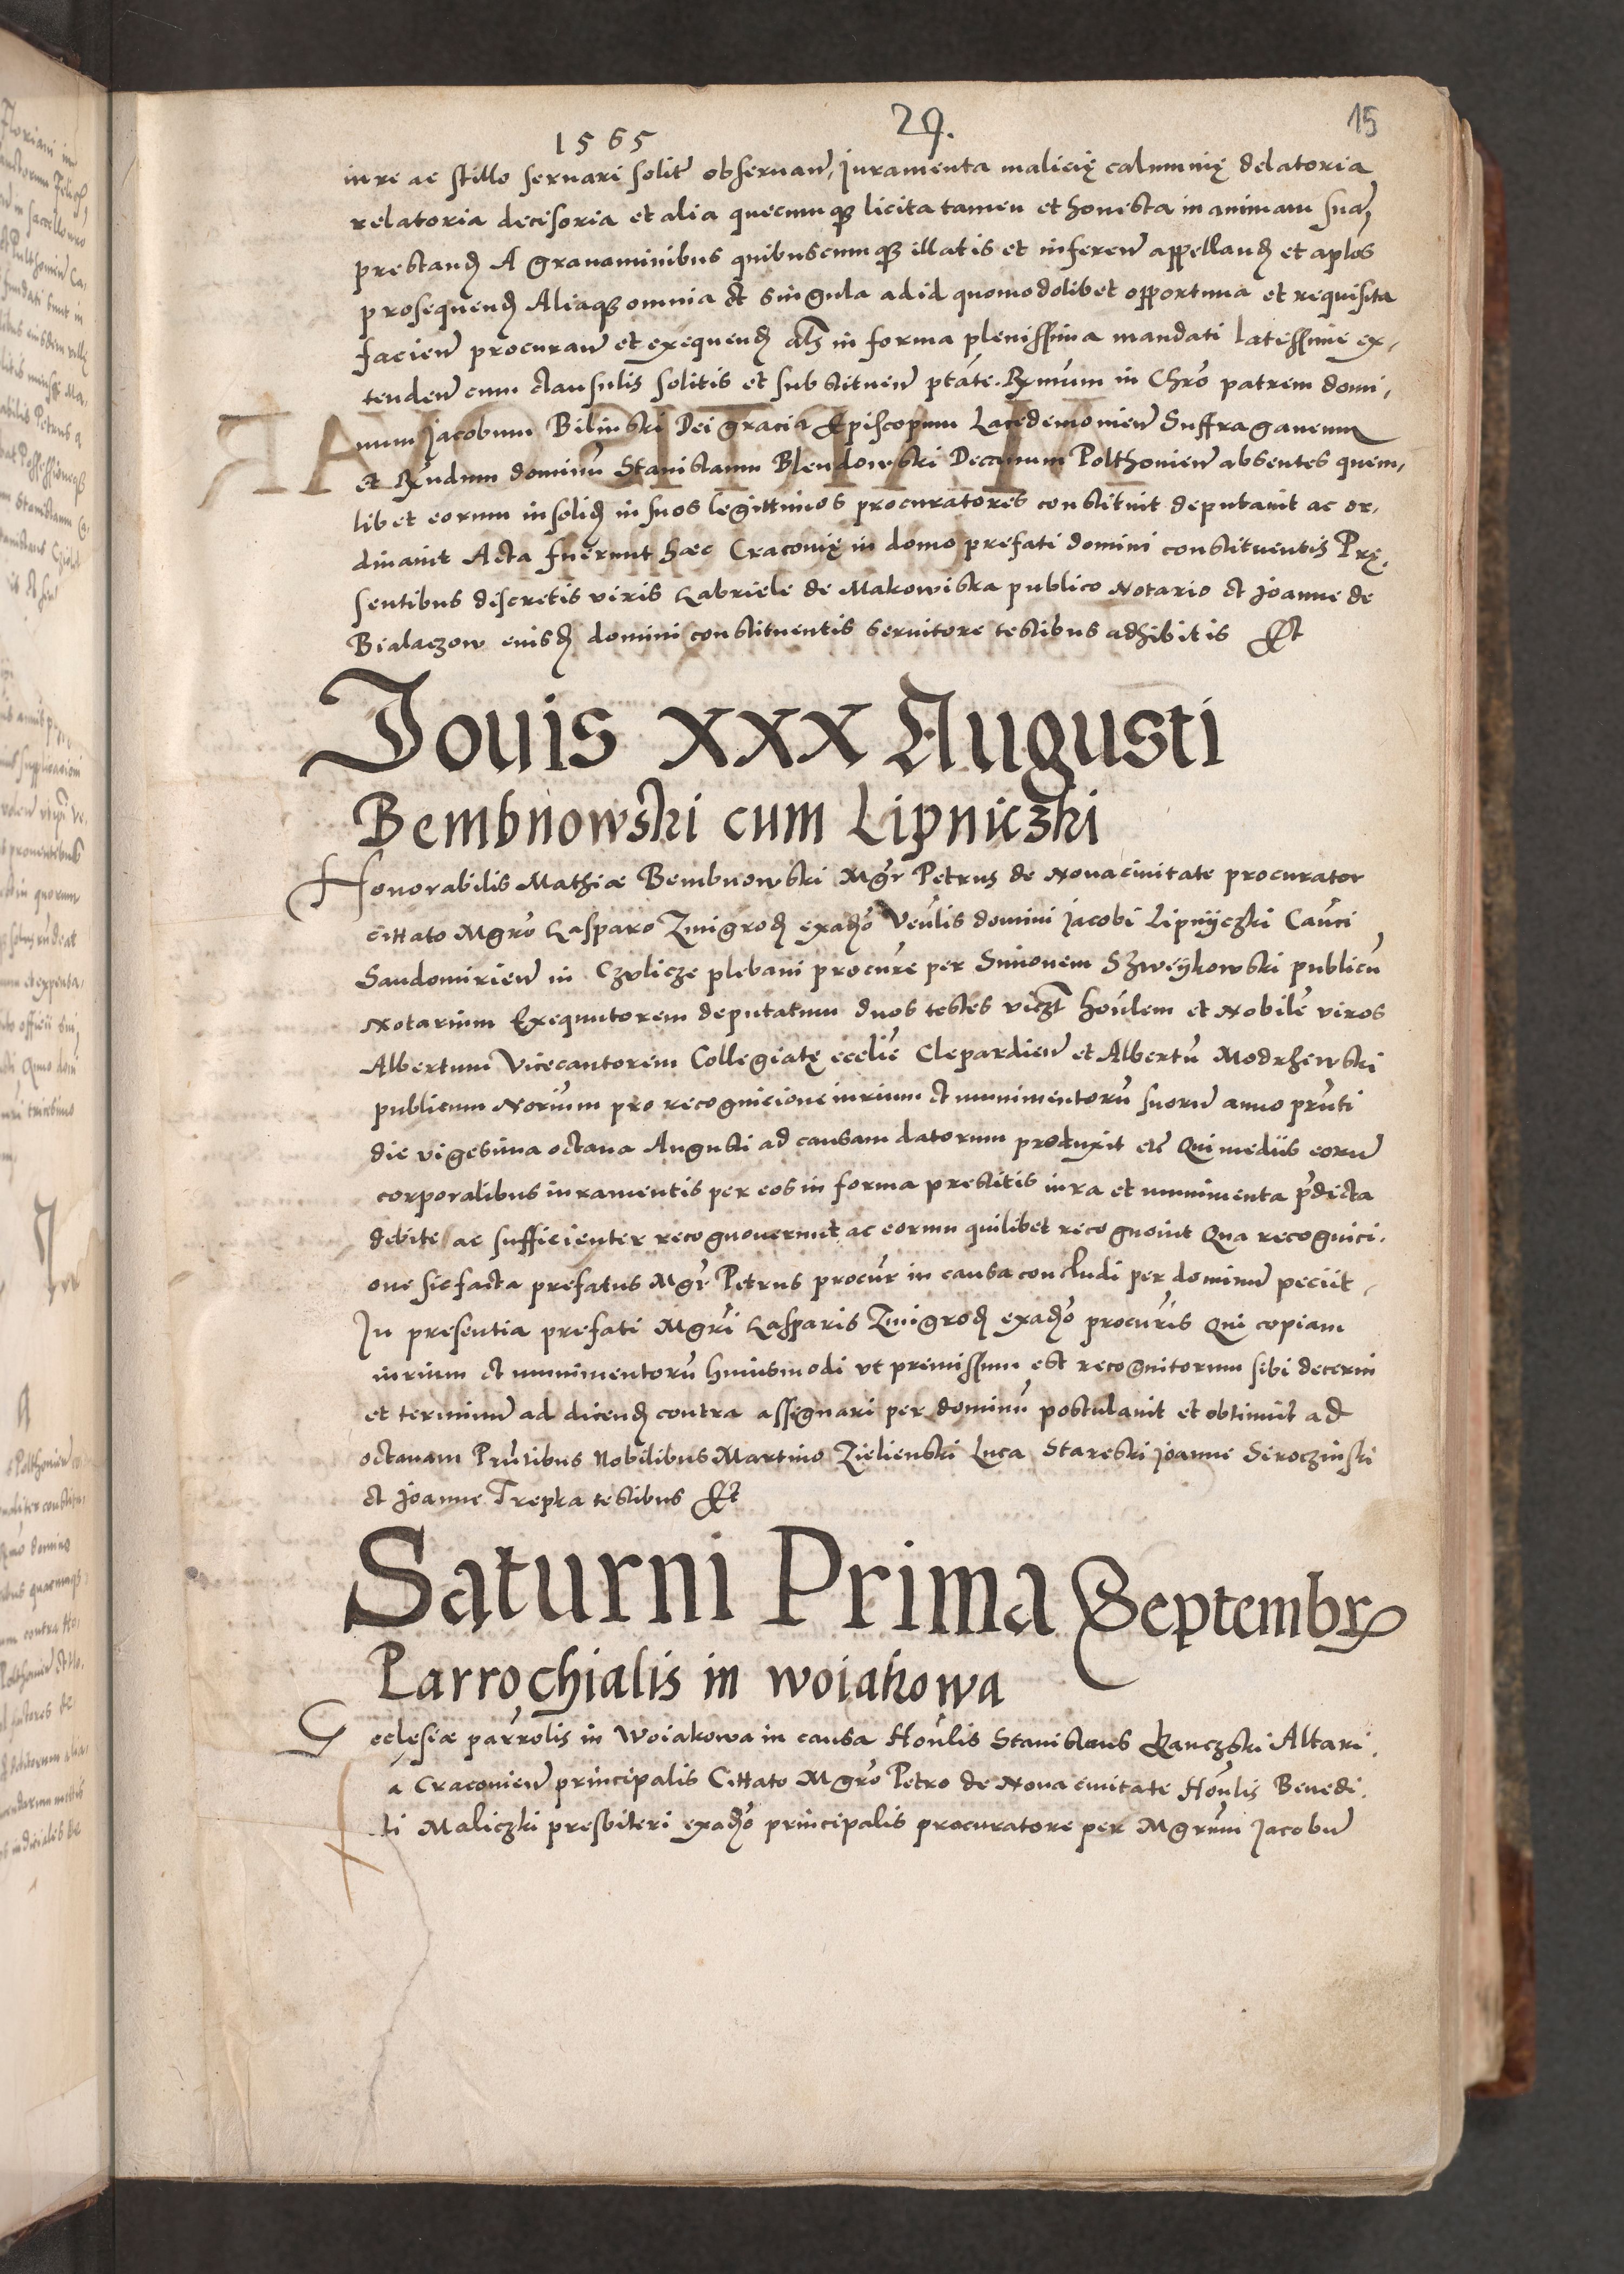 1565
29.
15
in re ac stillo seruari solitum obseruan, Juramenta malicię calumnię delatoria
relatoria decisoria et alia quecumq3 licita tamen et honesta in animam suam
prestand A grauaminibus quibuscumq3 illatis et inferen appelland et aplos
prosequend Aliaq3 omnia et singula ad id quomodolibet opportuna et requisita
facien procuran et exequend als in forma plenissima mandati latissime ex,
tenden cum clausulis solitis et substituen ptate. Rmum in Chro patrem domi,
num Jacobum Bilinski Dei gracia Episcopum Lacedemonien Suffraganeum
et Rndum dominu Stanislaum Blendowski Decanum Polthonien absentes quem,
libet eorum insolid in suos legittimos procuratores constituit deputauit ac or,
dinauit Acta fuerunt haec Cracouię in domo prefati domini constituentis Prę,
sentibus discretis viris Gabriele de Makowiska publico Notario et Joanne de
Bialaczow eiusd domini constituentis seruitore testibus adhibitis Et
Jouis xxx Augusti
Bembnowski cum Lipniczki
Honorabilis Mathiæ Bembnowski Mgr Petrus de Noua ciuitate procurator
cittato Mgro Gasparo Zmigrod exadso Venlis domini Jacobi Lipnyczki Canci
Sandomirien in Czulicze plebani procure per Simonem Szweykowski publicu
Notarium Exequutorem deputatum duos testes viczt honlem et Nobile viros
Albertum Vicecantorem Collegiatę ecclie Clepardien et Albertu Modrzewski
publicum Norium pro recognicione iurium et munimentoru suoru anno pnti
die vigesima octaua Augusti ad causam datorum produxit etc Qui medus eoru
corporalibus iuramentis per eos in forma prestitis iura et munimenta pdicta
debite ac sufficienter recognouerunt ac eorum quilibet recognouit Qua recognici,
one sic facta prefatus Mgr Petrus procur in causa concludi per dominu peciit
In presentia prefati Mgri Gasparis Zmigrod exadso procuris Qui copiam
iurium et munimentoru huiusmodi vt premissum est recognitorum sibi decerni
et terminu ad dicend contra assignari per dominu postulauit et obtinuit ad
octauam Pntibus Nobilibus Martino Zielienski Luca Stareski Joanne Siroczinski
et Joanne Trepka testibus Et
Saturni Prima Septembr
Parrochialis in woiakowa
Ecclesiæ parrolis in Woiakowa in causa Honlis Stanislaus Kanczski Altari,
a Cracouien principalis Cittato Mgro Petro de Noua ciuitate Honlis Benedi,
cti Maliczki presbiteri exadso principalis procuratore per Mgrum Jacobu